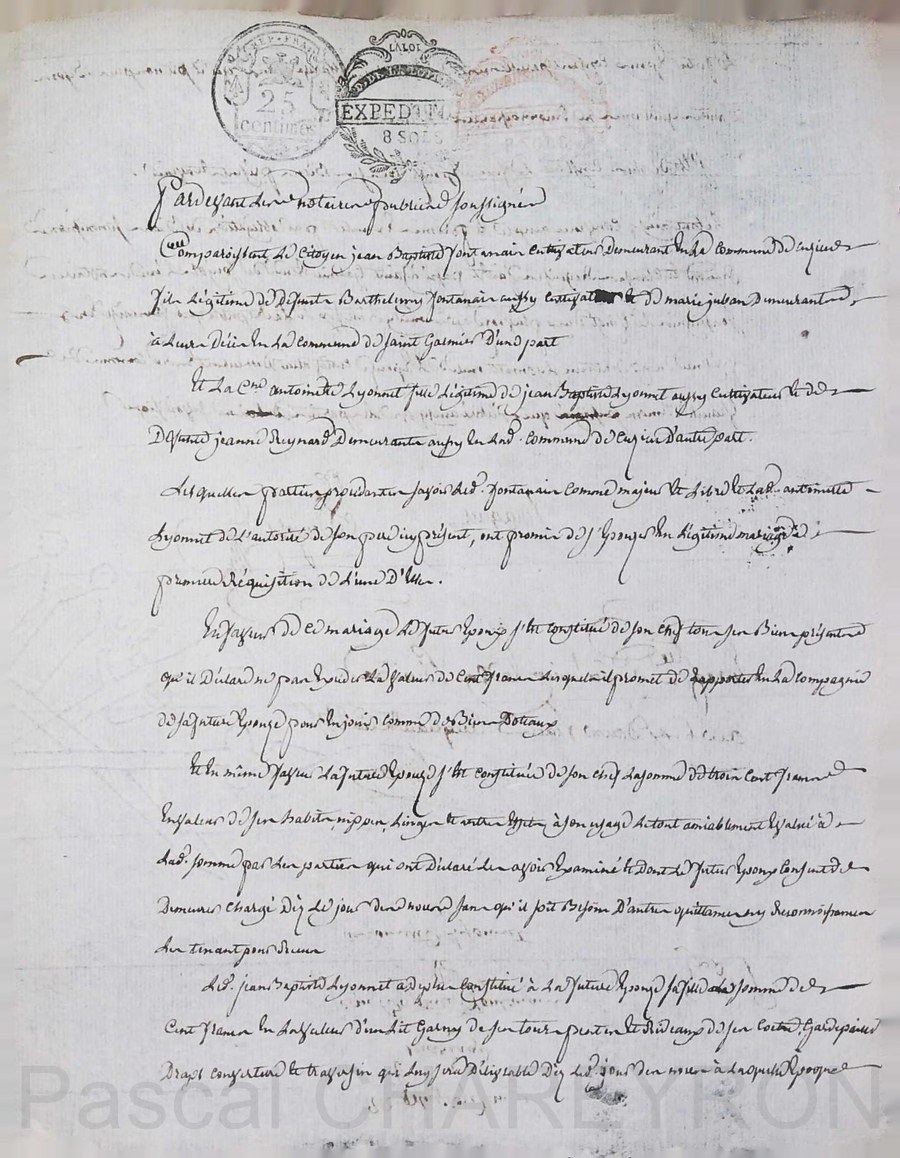 REP. FRA
25
centimes
LA LOI
EXPEDIT
8 SOLS
Pardevant Les notaires publics soussignés
Comparoissent, Le Citoyen jean Baptiste fontanair cultivateur demeurant en La commune de cuzieu
fils Légitime de Défunts Barthelemy fontanair aussy cultivateur et de marie juban demeurants
à Leurs Décès en La commune de saint Galmier D'une part
Et La Cne antoinette Lyonnet fille Légitime de jean Baptiste Lyonnet aussy cultivateur et de
Defunte jeanne Reynard Demeurante aussy en Lad. commune de cuzieu D'autre part.
Lesquelles parties procedantes savoir Led. fontanair comme majeur et Libre et Lad. antoinette
Lyonnet de L'autorité de son pere icy présent, ont promis de s'Epouzer En Légitime mariage à
premiere Réquisition de L'une D'Elles.
En faveur de ce mariage Le futur Epoux s'est constitué de son chef tous ses Biens présents
qu'il Déclare ne pas Exceder La valeur de Cent francs Lesquels il promet de rapporter En La compagnie
de sa future Epouze pour En jouir comme de Biens Dotaux
Et En même faveur La future Epouze s'est constituée de son chef La somme de trois cent francs
En valeur de ses habits, nippes, Linges et autres Effets à son usage Le tout amiablement Evalué à
Lad. somme par Les parties qui ont Déclaré Les avoir Examiné et Dont Le futur Epoux Consent de
Demeurer Chargé Dez Le jour des noces sans qu'il soit Besoin D'autres quittances ny Reconnoissances
Les tenant pour Reçus
Led. jean Baptiste Lyonnet a De plus Constitué à La future Epouze sa fille La somme de
Cent francs En La valeur d'un Lit Garny de ses tours pentes et Rideaux de son Coetre, Gardepaille
Draps couverture et traversin qui Luy sera Délivrable Dez Led. jour des noces à Laquelle Epoque
Pascal CHAREYRON